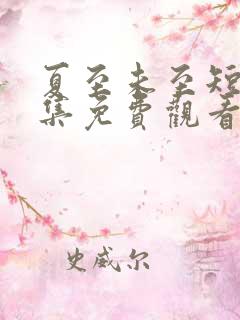 夏至未至短
集免費觀看
史威尔